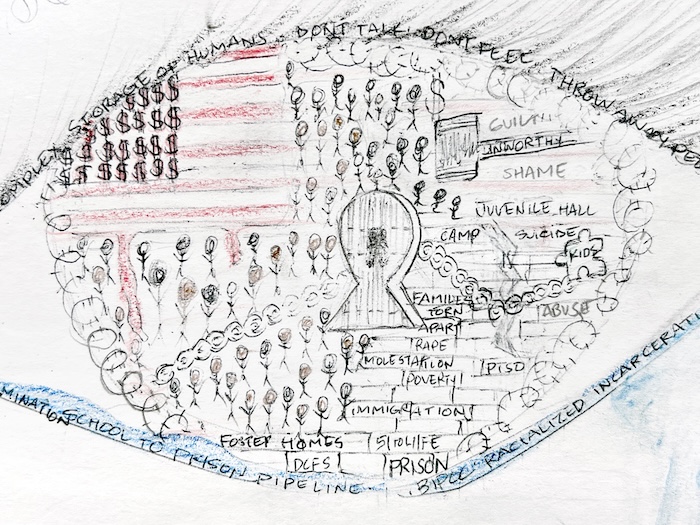 STORAGE OF HUMANS. DONT TALK DONT FEEL THROW AWAY
$ $ $ $
$ $ $ $ $
$ $ $ $ $
$ $ $ $ $ $
$
GUILTY
UNWORTHY
SHAME
JUVENILE HALL
CAMP SUICIDE
KIDZ
ABUSE
FAMILIES
TORN
APART
RAPE
MOLESTATION PTSD
POVERTY
IMMIGRATION
FOSTER HOMES LIFE
DCFS PRISON
MINATION SCHOOL TO PRISON PIPELINE. BIPOC RACIALIZED INCARCERATI